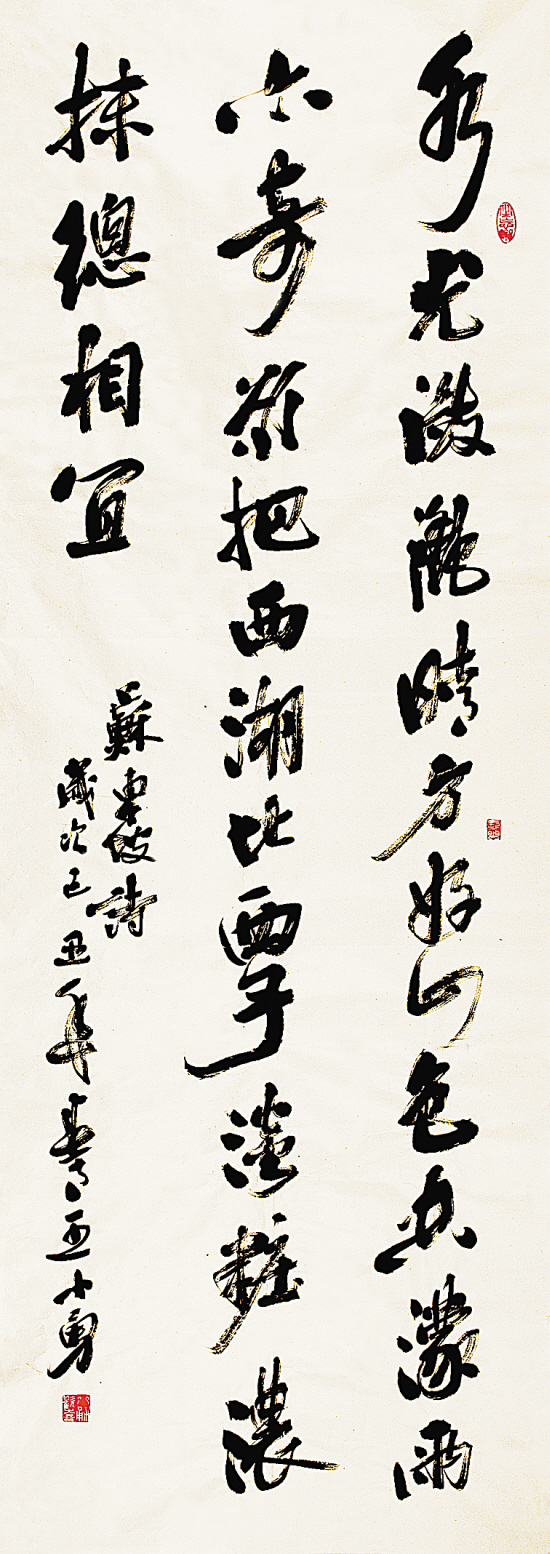 水光瀲灔晴方好山色空濛雨
亦奇欲把西湖比西子淡粧濃
抹總相宜
蘇東坡詩
歲次己丑年小勇